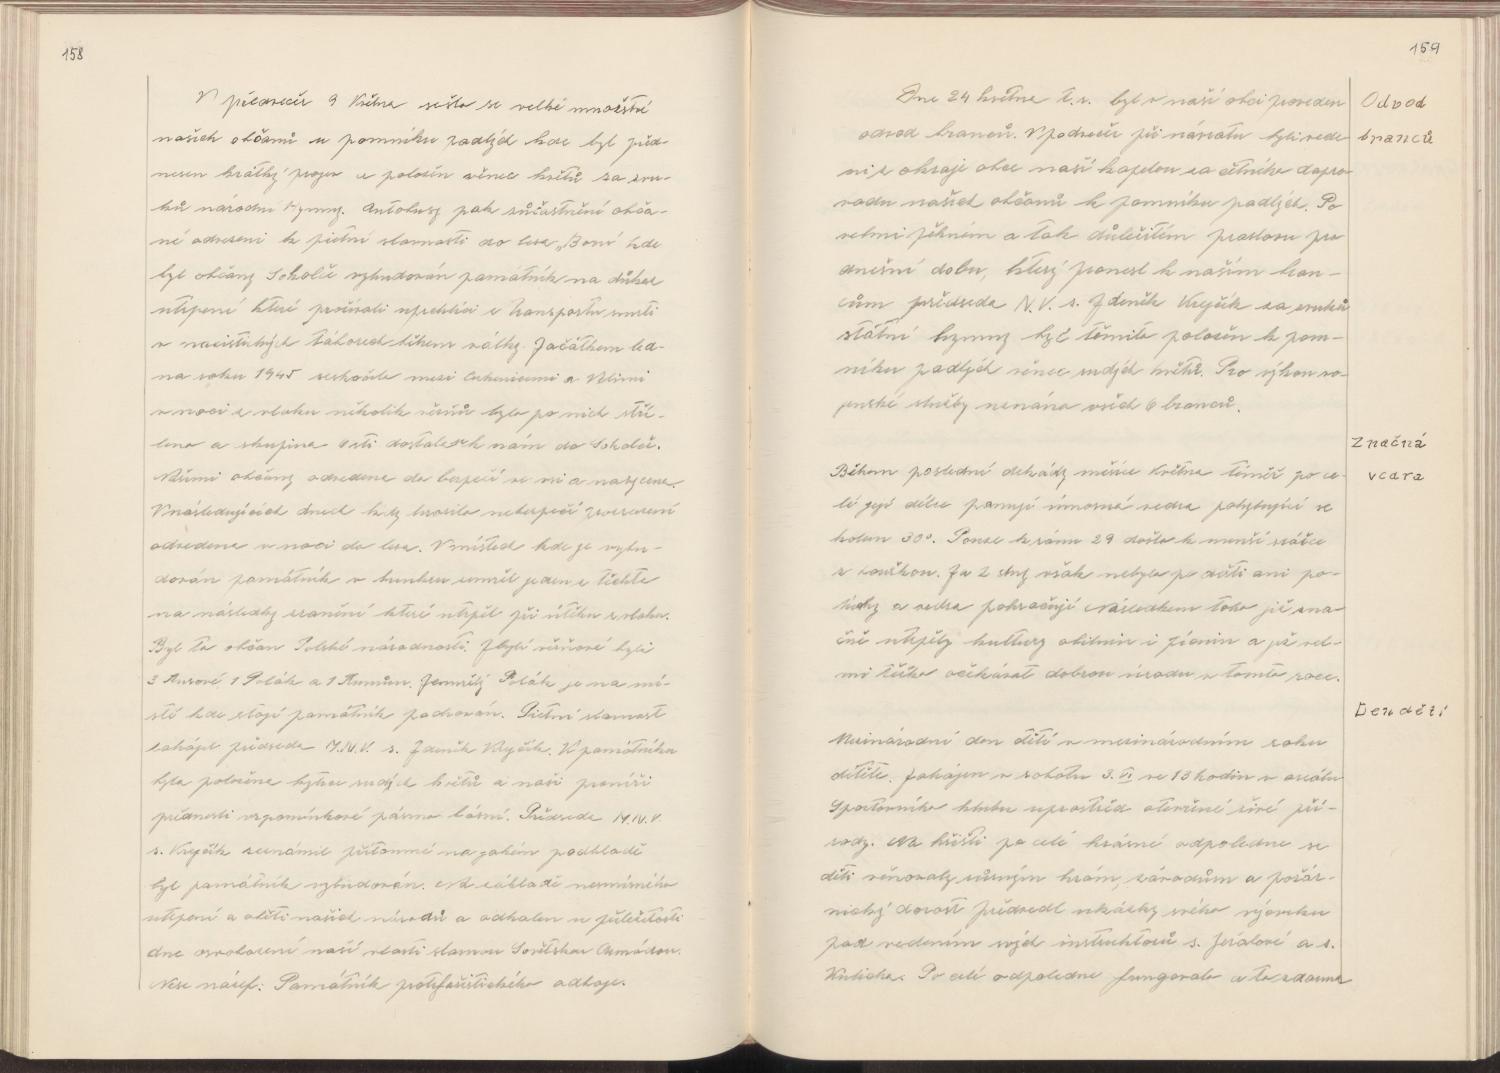 158
V předvečer 9 Května sešlo se velké množství
našich občanů u pomníku padlých kde byl před-
nesen krátký projev a položen věnec květů za zvu-
ků národní hymny. Autobusy pak zúčastnění obča-
né odvezeni k pietní slavnosti do lesa „Boní kde
byl občany Sokolče vybudován památník na důkaz
utrpení které prožívali uprchlíci z transportu smrti
v nacistických táborech během války. Začátkem led-
na roku 1945 seskočilo mezi Cerhenicemi a Velimi
v noci z vlaku několik vězňů bylo po nich stří-
leno a skupina 6 ti dostala se k nám do Sokolče.
Našimi občany odvedena do bezpečí ve vsi a nasycena.
V následujících dnech kdy hrozilo nebezpečí prozrazení
odvedena v noci do lesa. V místech kde je vybu-
dován památník v bunkru zemřel jeden z těchto
na následky zranění které utrpěl při útěku z vlaku.
Byl to občan Polské národnosti. Zbylí vězňové byli
3 Rusové 1 Polák a 1 Rumun. Zemřelý Polák je na mí-
stě kde stojí památník pochován. Pietní slavnost
zahájil předseda M.N.V. s. Zdeněk Krejčík. K památníku
byla položena kytice rudých květů a naši pionýři
přednesli vzpomínkové pásmo básní. Předseda M.N.V.
s. Krejčík seznámil přítomné na jakém podkladě
byl památník vybudován. Na základě nesmírného
utrpení a obětí našich národů a odhalen u příležitosti
dne osvobození naší vlasti slavnou Sovětskou Armádou.
Nese název: Památník protifašistického odboje.
159
Odvod
branců
Dne 24 května t.r. byl v naší obci proveden
odvod branců. V podvečer při návratu byli vede
ni z okraje obce naší kapelou za četného dopro
vodu našich občanů k pomníku padlých. Po
velmi pěkném a tak důležitém proslovu pro
dnešní dobu, který pronesl k našim bran-
cům předseda N.V. s. Zdeněk Krejčík za zvuků
státní hymny byl těmito položen k pom-
níku padlých věnec rudých květů. Pro výkon vo-
jenské služby nenána všech 6 branců.
Značná
vedra
Během poslední dekády měsíce května téměř po ce-
lé její délce panují úmorná vedra pohybující se
kolem 30°. Pouze k ránu 29 došlo k menší srážce
s bouřkou. Za 2 dny však nebylo po dešti ani po-
tuchy a vedra pokračují následkem toho již zna-
čně utrpěly kultury obilnin i pícnin a již vel-
mi těžko očekávat dobrou úrodu v tomto roce.
Den dětí
Mezinárodní den dětí v mezinárodním roku
dítěte. Zahájen v sobotu 3. VI ve 13 hodin v areálu
Sportovního klubu uprostřed otevřené širé pří-
rody. Na hřišti po celé krásné odpoledne se
děti věnovaly různým hrám, závodům a požár-
nický dorost předvedl ukázky svého výcviku
pod vedením svých instruktorů s. Jeřálové a s.
Po celé odpoledne fungovalo a to zdarma